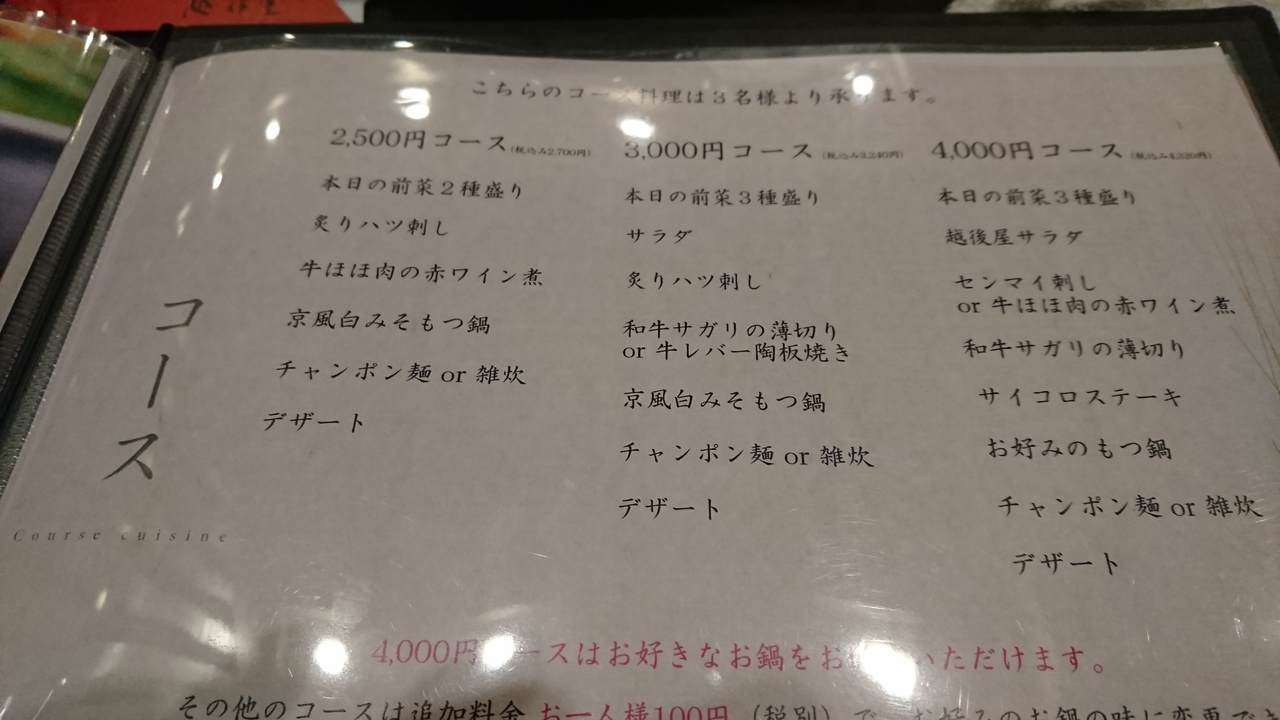 こちらのコース料理は3名様より承ります。
2,500円コース(税込み2,700円)
本日の前菜2種盛り
炙りハツ刺し
牛ほほ肉の赤ワイン煮
京風白みそもつ鍋
チャンポン麺 or 雑炊
デザート
3,000円コース(税込み3,240円)
本日の前菜3種盛り
サラダ
炙りハツ刺し
和牛サガリの薄切り
or 牛レバー陶板焼き
京風白みそもつ鍋
チャンポン麺 or 雑炊
デザート
4,000円コース(税込み4,320円)
本日の前菜3種盛り
越後屋サラダ
センマイ刺し
or 牛ほほ肉の赤ワイン煮
和牛サガリの薄切り
サイコロステーキ
お好みのもつ鍋
チャンポン麺 or 雑炊
デザート
コース
Course cuisine
4,000円コースはお好きなお鍋をお いただけます。
その他のコースは追加料金 お一人様100円(税別)で、お好みのお鍋の味に変更でき